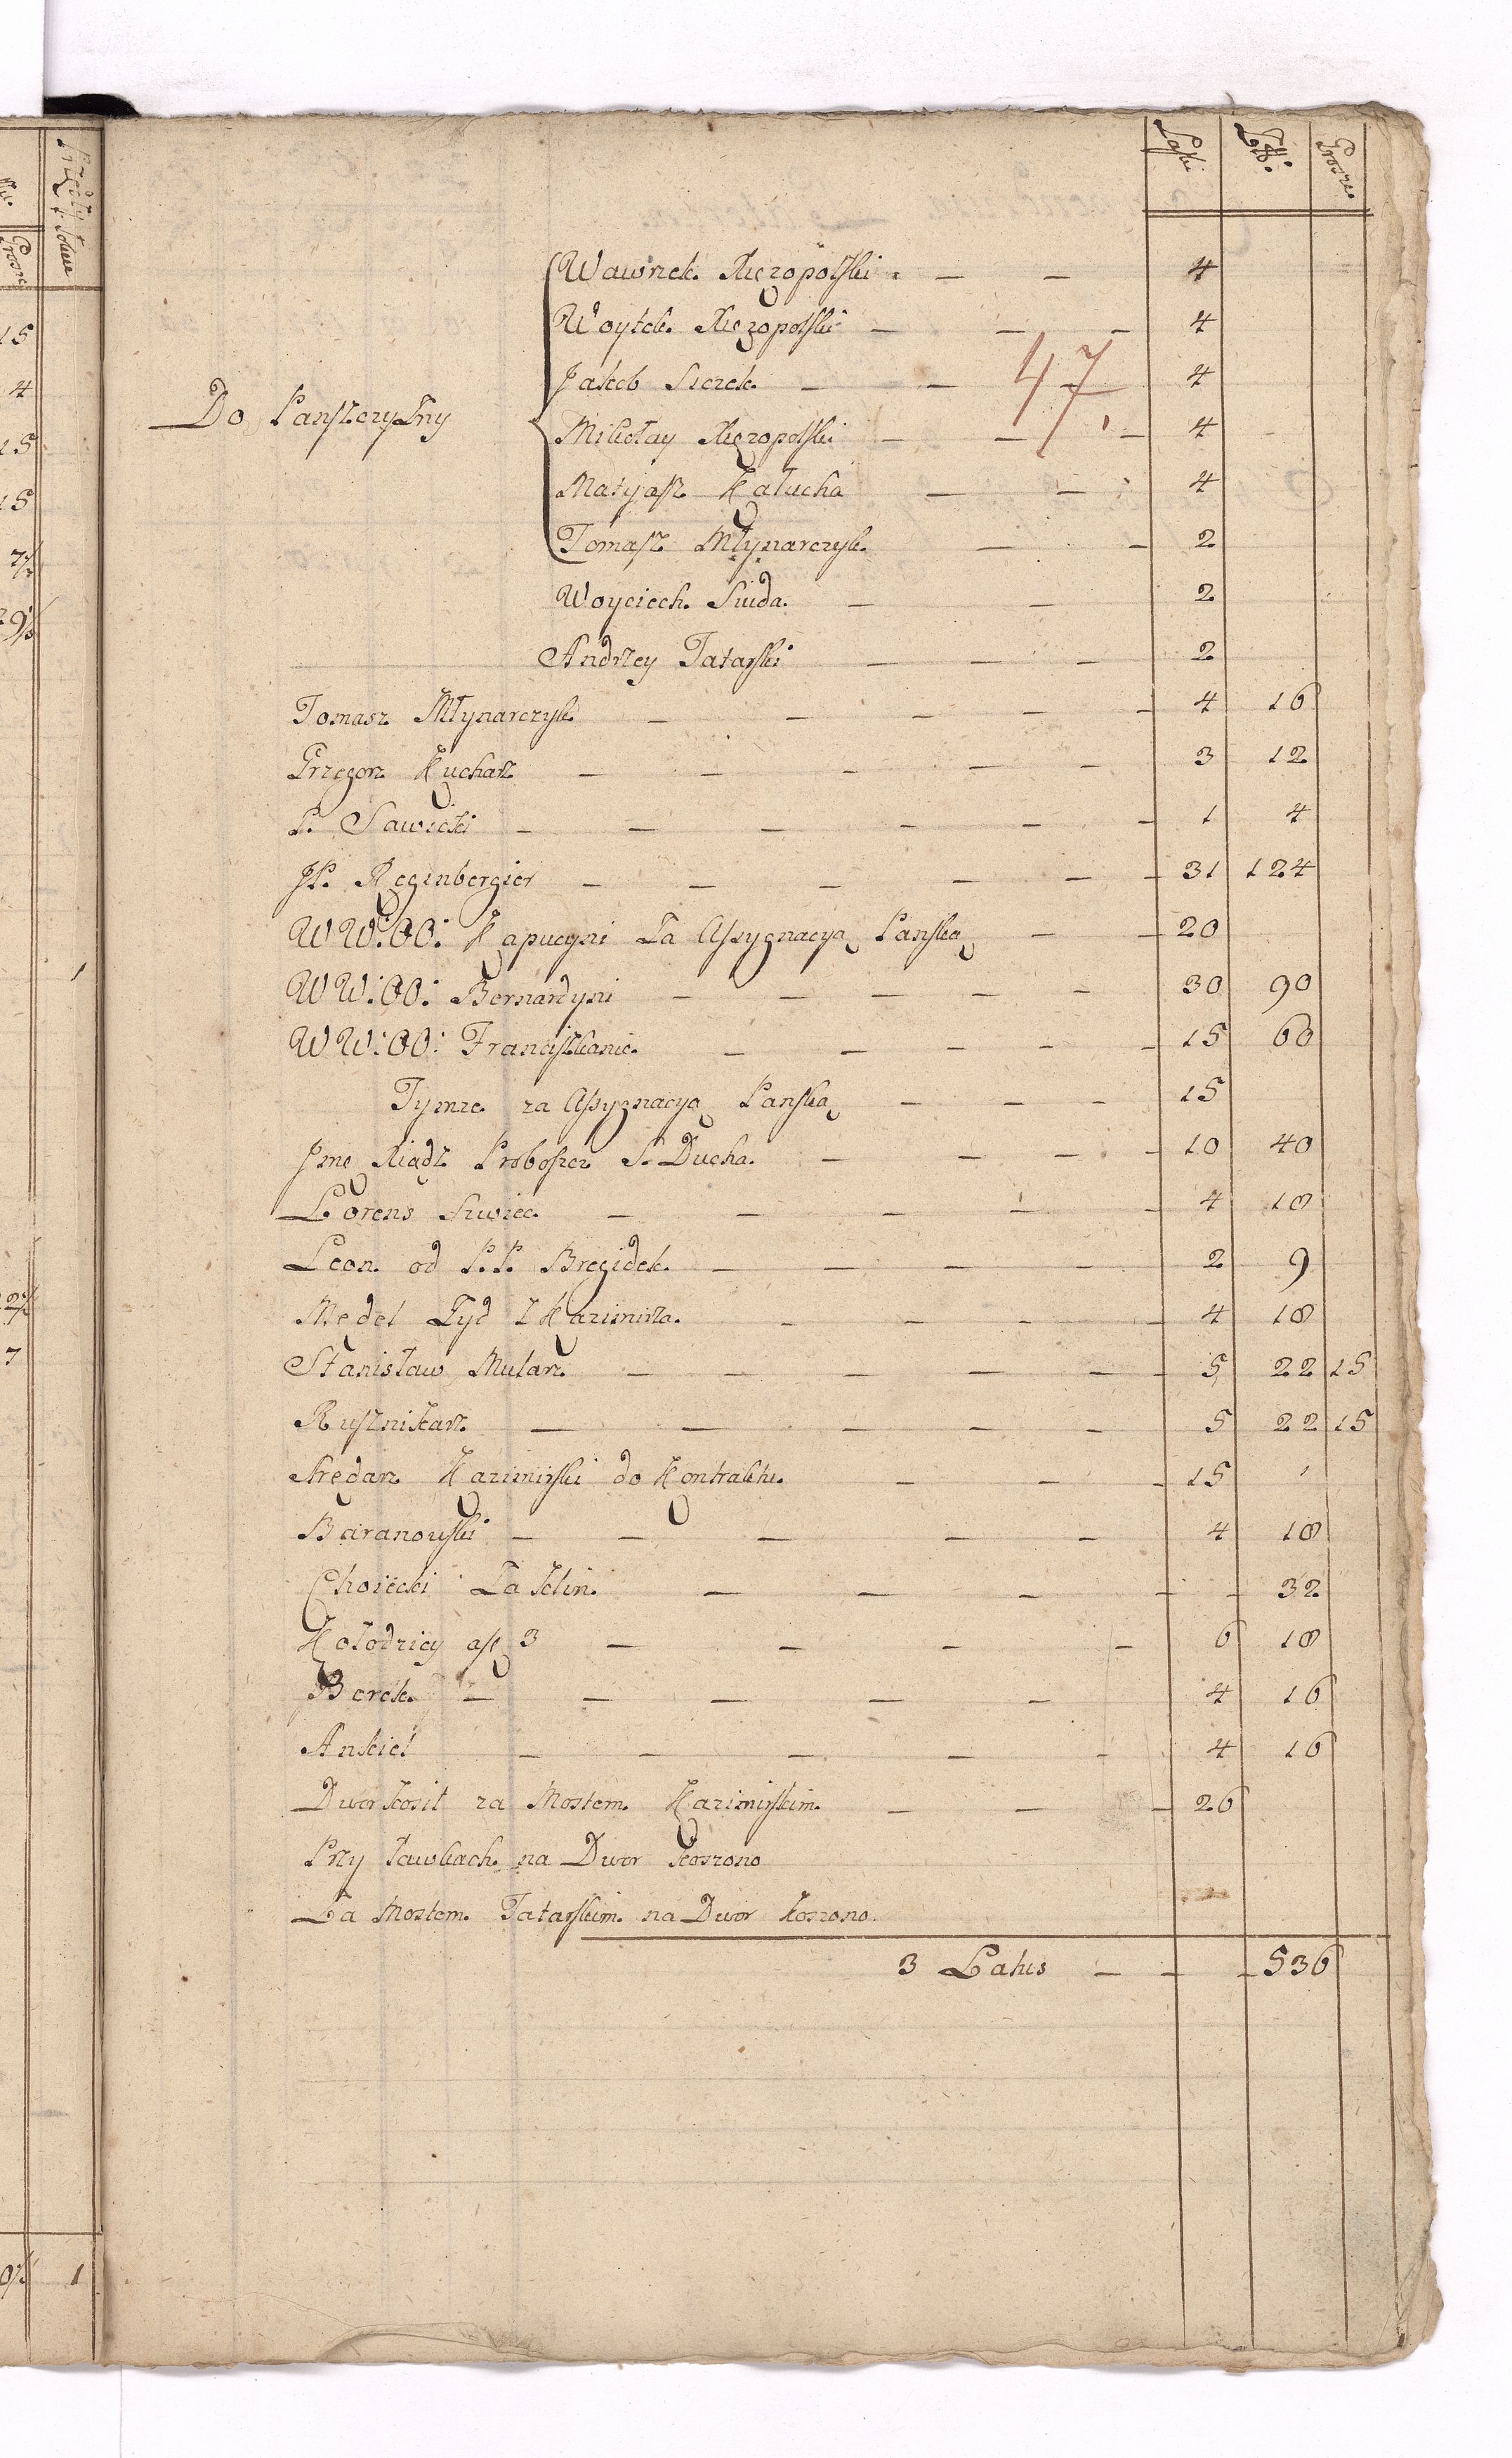 Łaski Złł: Grosze
Wawrzek Xięzopolski 4
Woytek Xięzopolski 4
47.
Jakob Sierek 4
Do Panszczyzny
Mikołay Xięzopolski 4
Matyasz Kałucha 4
Tomasz Młynarczyk 2
Woyciech Suida 2
Andrzey Tatarski 2
Tomasz Młynarczyk 4 16
Grzegorz Kucharz 3 12
P. Sawicki 1 4
JP. Reginbergier 31 124
WW:OO: Kapucyni Za Assygnacyą Panską 20
WW:OO: Bernardyni 30 90
WW:OO: Franciszkanie 15 60
Tymze za Assygnacyą Panską 15
Jmc Xiądz Proboszcz S. Ducha 10 40
Lorens Szwiec 4 18
Leon od P.P. Bregidek 2 9
Mędel Zyd z Kazimirza 4 18
Stanisław Mularz 5 22 15
Rusznikarz 5 22 15
Arędarz Kazimirski do Kontraktu 15
Baranowski 4 18
Choiecki Za klin 32
Kołodzicy 3 6 18
Berek 4 16
Ankiel 4 16
Dwor kosił za Mostem Kazimirskim 26
Przy Ławkach na Dwor koszono
Za Mostem Tatarskim na Dwor koszono
3 Latus 536
15
4
15
15
1
7
1